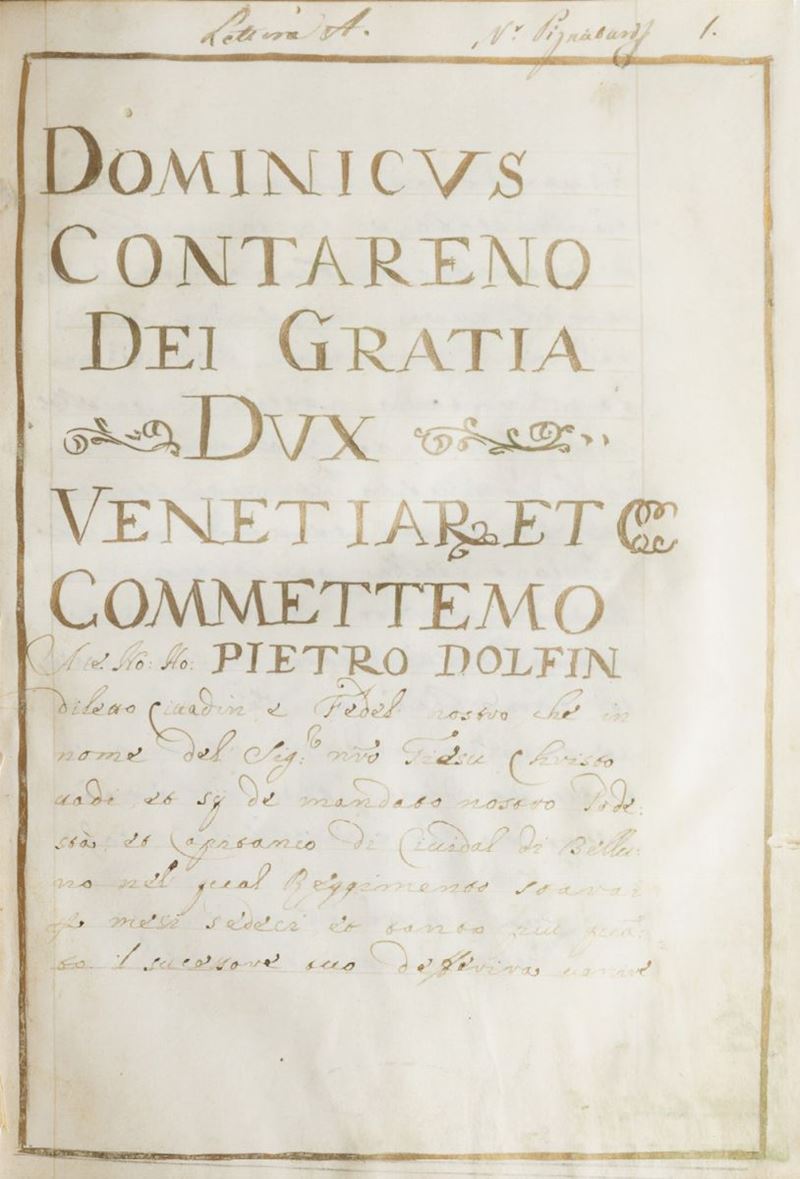 Lettera A. N.r 1.
DOMINICVS
CONTARENO
DEI GRATIA
DVX
VENETIAR ET C
COMMETTEMO
A te No: Ho: PIETRO DOLFIN
diletto Cittadin e Fedel nostro che in
nome del Sig:r nro Giesu Christo
vadi, et sij de mandato nostro Pode:
stà, et Capitanio di Cividal di Bellu:
no nel qual Reggimento starai
mesi sedeci et tanto più quan:
to il sucessore tuo defferirà venire